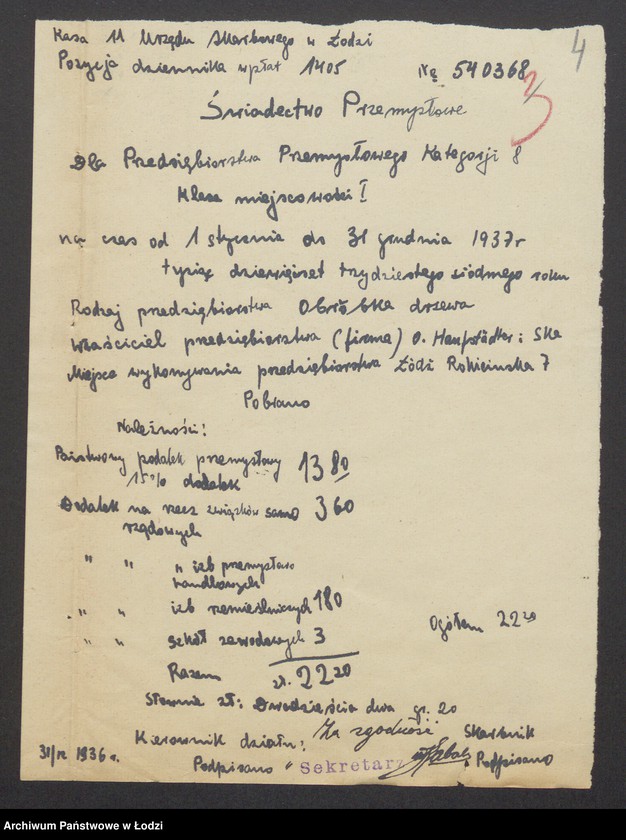 Kasa 11 Urzędu Skarbowego w Łodzi
4
Pozycja dziennika wpłat 1405 Nr 540368
Świadectwo Przemysłowe
Dla Przedsiębiorstwa Przemysłowego Kategorji 8
Klasa miejscowości I
na czas od 1 stycznia do 31 grudnia 1937 r
tysiąc dziewięćset trzydziestego siódmego roku
Rodzaj przedsiębiorstwa Obróbka drzewa
Właściciel przedsiębiorstwa (firma) O. Hauptstädter i Ska
Miejsce wykonywania przedsiębiorstwa Łódź Rokicinska 7
Pobrano
Należności:
Państwowy podatek przemysłowy 13 80
15% dodatek
Dodatek na rzecz związków samo 3 60
rządowych
" " " izb przemysłowo
handlowych
" " izb rzemieślniczych 1 80
Ogółem 22 20
" " szkół zawodowych 3
Razem zł. 22 20
Słownie zł: Dwadzieścia dwa gr. 20
Za zgodność Skarbnik
Kierownik działu:
31/ 1936 r. Podpisano " Sekretarz Podpisano
Archiwum Państwowe w Łodzi